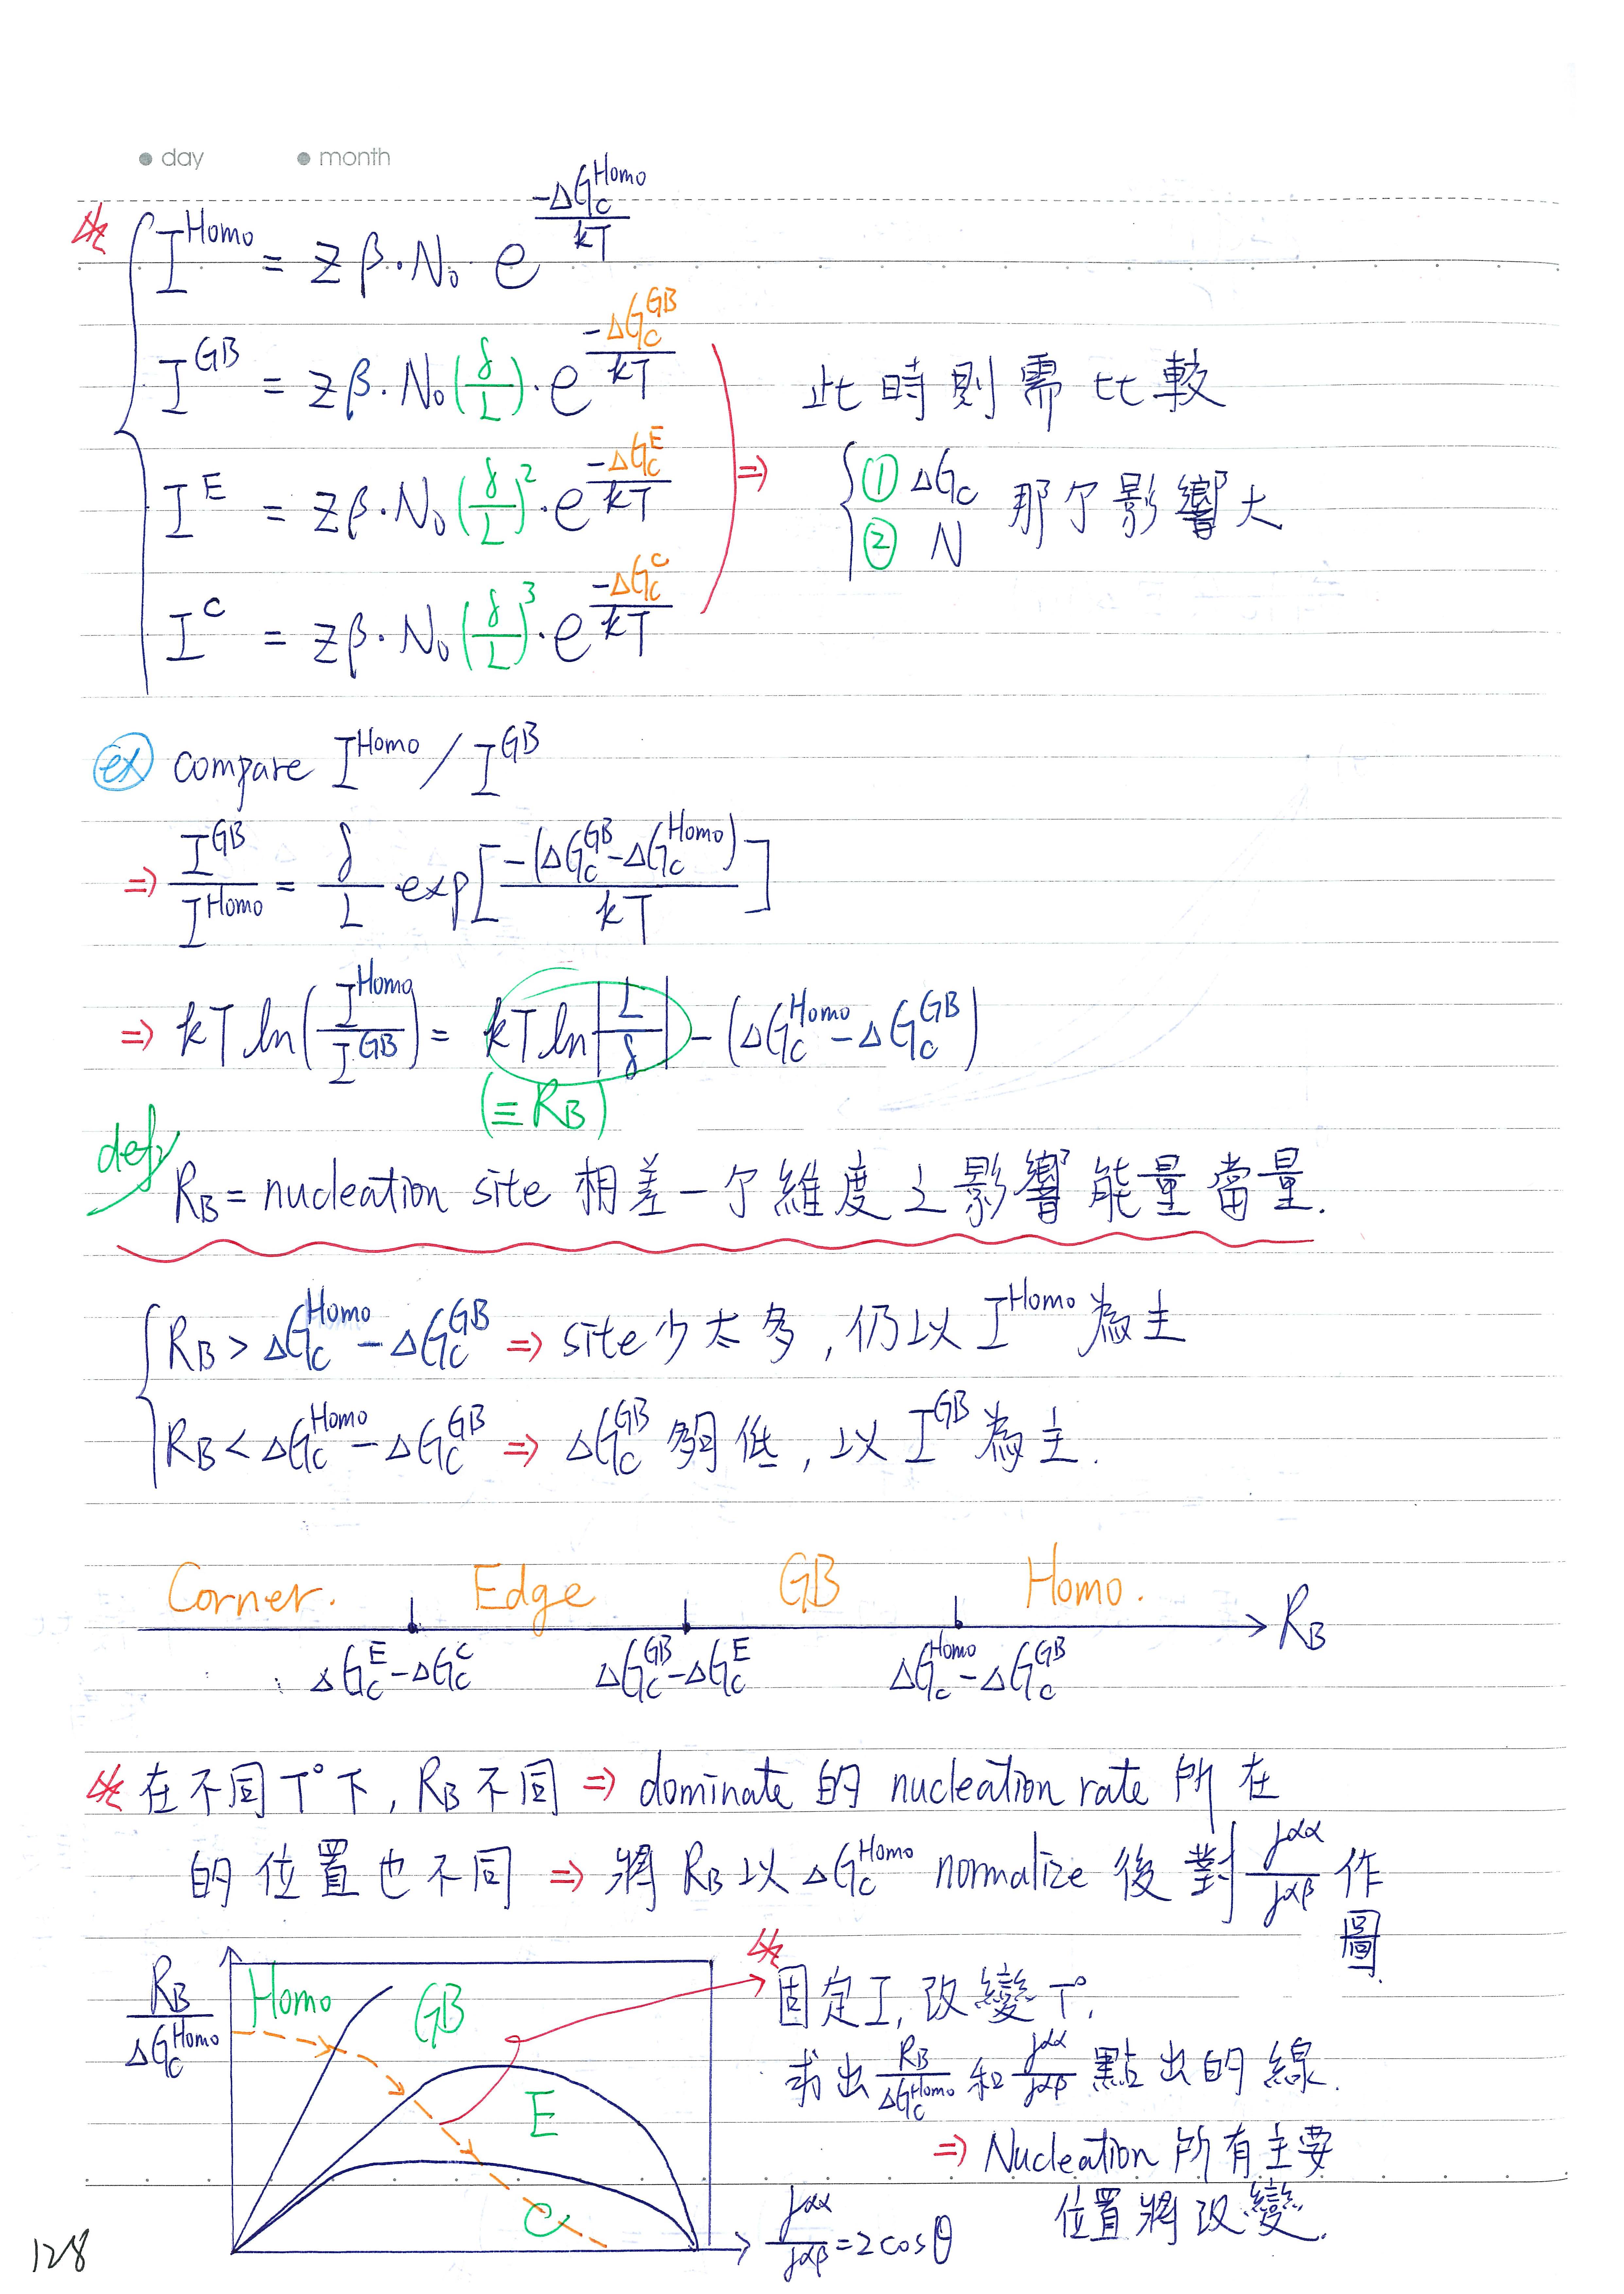 day month
※ I^Homo = zβ·N₀ e^(-ΔG_c^Homo / kT)
I^GB = zβ·N₀(δ/L)·e^(-ΔG_c^GB / kT) ⇒ 此時則需比較
I^E = zβ·N₀(δ/L)²·e^(-ΔG_c^E / kT) ① ΔG_c ② N 那个影響大
I^C = zβ·N₀(δ/L)³·e^(-ΔG_c^C / kT)
ex compare I^Homo / I^GB
⇒ I^GB / I^Homo = δ/L exp[-(ΔG_c^GB - ΔG_c^Homo) / kT]
⇒ kT ln(I^Homo / I^GB) = kT ln|L/δ| - (ΔG_c^Homo - ΔG_c^GB)
(≡ R_B)
def
R_B = nucleation site 相差一个維度之影響能量當量.
R_B > ΔG_c^Homo - ΔG_c^GB ⇒ site少太多, 仍以 I^Homo 為主
R_B < ΔG_c^Homo - ΔG_c^GB ⇒ ΔG_c^GB 夠低, 以 I^GB 為主.
Corner. Edge GB Homo.
R_B
ΔG_c^E - ΔG_c^C ΔG_c^GB - ΔG_c^E ΔG_c^Homo - ΔG_c^GB
※ 在不同T°下, R_B不同 ⇒ dominate 的 nucleation rate 所在
的位置也不同 ⇒ 將 R_B 以 ΔG_c^Homo normalize 後對 γ^αα / γ^αβ 作
圖.
R_B / ΔG_c^Homo
Homo GB
E
C
γ^αα / γ^αβ = 2cosθ
※ 固定I, 改變T°,
求出 R_B / ΔG_c^Homo 和 γ^αα / γ^αβ 點出的線.
⇒ Nucleation 所有主要
位置將改變.
128